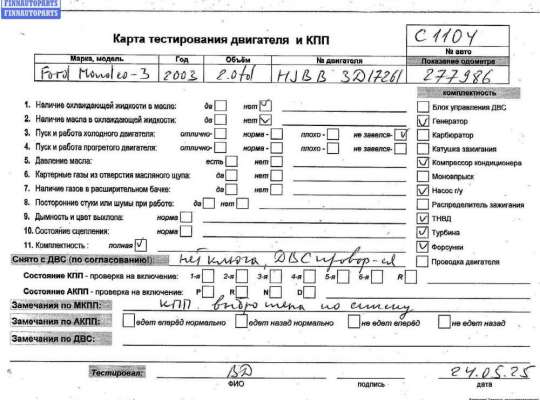 FINNAUTOPARTS
FINNAUTOPARTS
Карта тестирования двигателя и КПП
C1104
№ авто
Марка, модель Год Объём № двигателя Показание одометра
Ford Mondeo-3 2003 2.0td HJBB 3D17261 277986
комплектность
1. Наличие охлаждающей жидкости в масле: да нет
2. Наличие масла в охлаждающей жидкости: да нет
3. Пуск и работа холодного двигателя: отлично- норма - плохо - не завелся-
4. Пуск и работа прогретого двигателя: отлично- норма - плохо - не завелся-
5. Давление масла: есть нет
6. Картерные газы из отверстия масляного щупа: да нет
7. Наличие газов в расширительном бачке: да нет
8. Посторонние стуки или шумы при работе: да нет
9. Дымность и цвет выхлопа: норма
10. Состояние сцепления: норма
11. Комплектность : полная
Блок управления ДВС
Генератор
Карбюратор
Катушка зажигания
Компрессор кондиционера
Моновпрыск
Насос г/у
Распределитель зажигания
ТНВД
Турбина
Форсунки
Проводка двигателя
Снято с ДВС (по согласованию!): нет ключа, ДВС провор-ся
Состояние КПП - проверка на включение: 1-я 2-я 3-я 4-я 5-я 6-я R
Состояние АКПП - проверка на включение: P R N D
Замечания по МКПП: КПП выброшена по списку
Замечания по АКПП: едет вперёд нормально едет назад нормально не едет вперёд не едет назад
Замечания по ДВС:
Тестировал: ВД 24.05.25
ФИО подпись дата